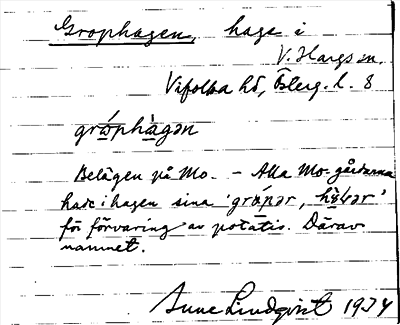 Grophagen, hage i
V. Hargs sn,
Vifolka hd, Österg. l. 8
grǿphàgən
Belägen på Mo. – Alla Mo-gårdarna
hade i hagen sina 'grópər, hǿlər'
för förvaring av potatis. Därav
namnet.
Sune Lindqvist 1934